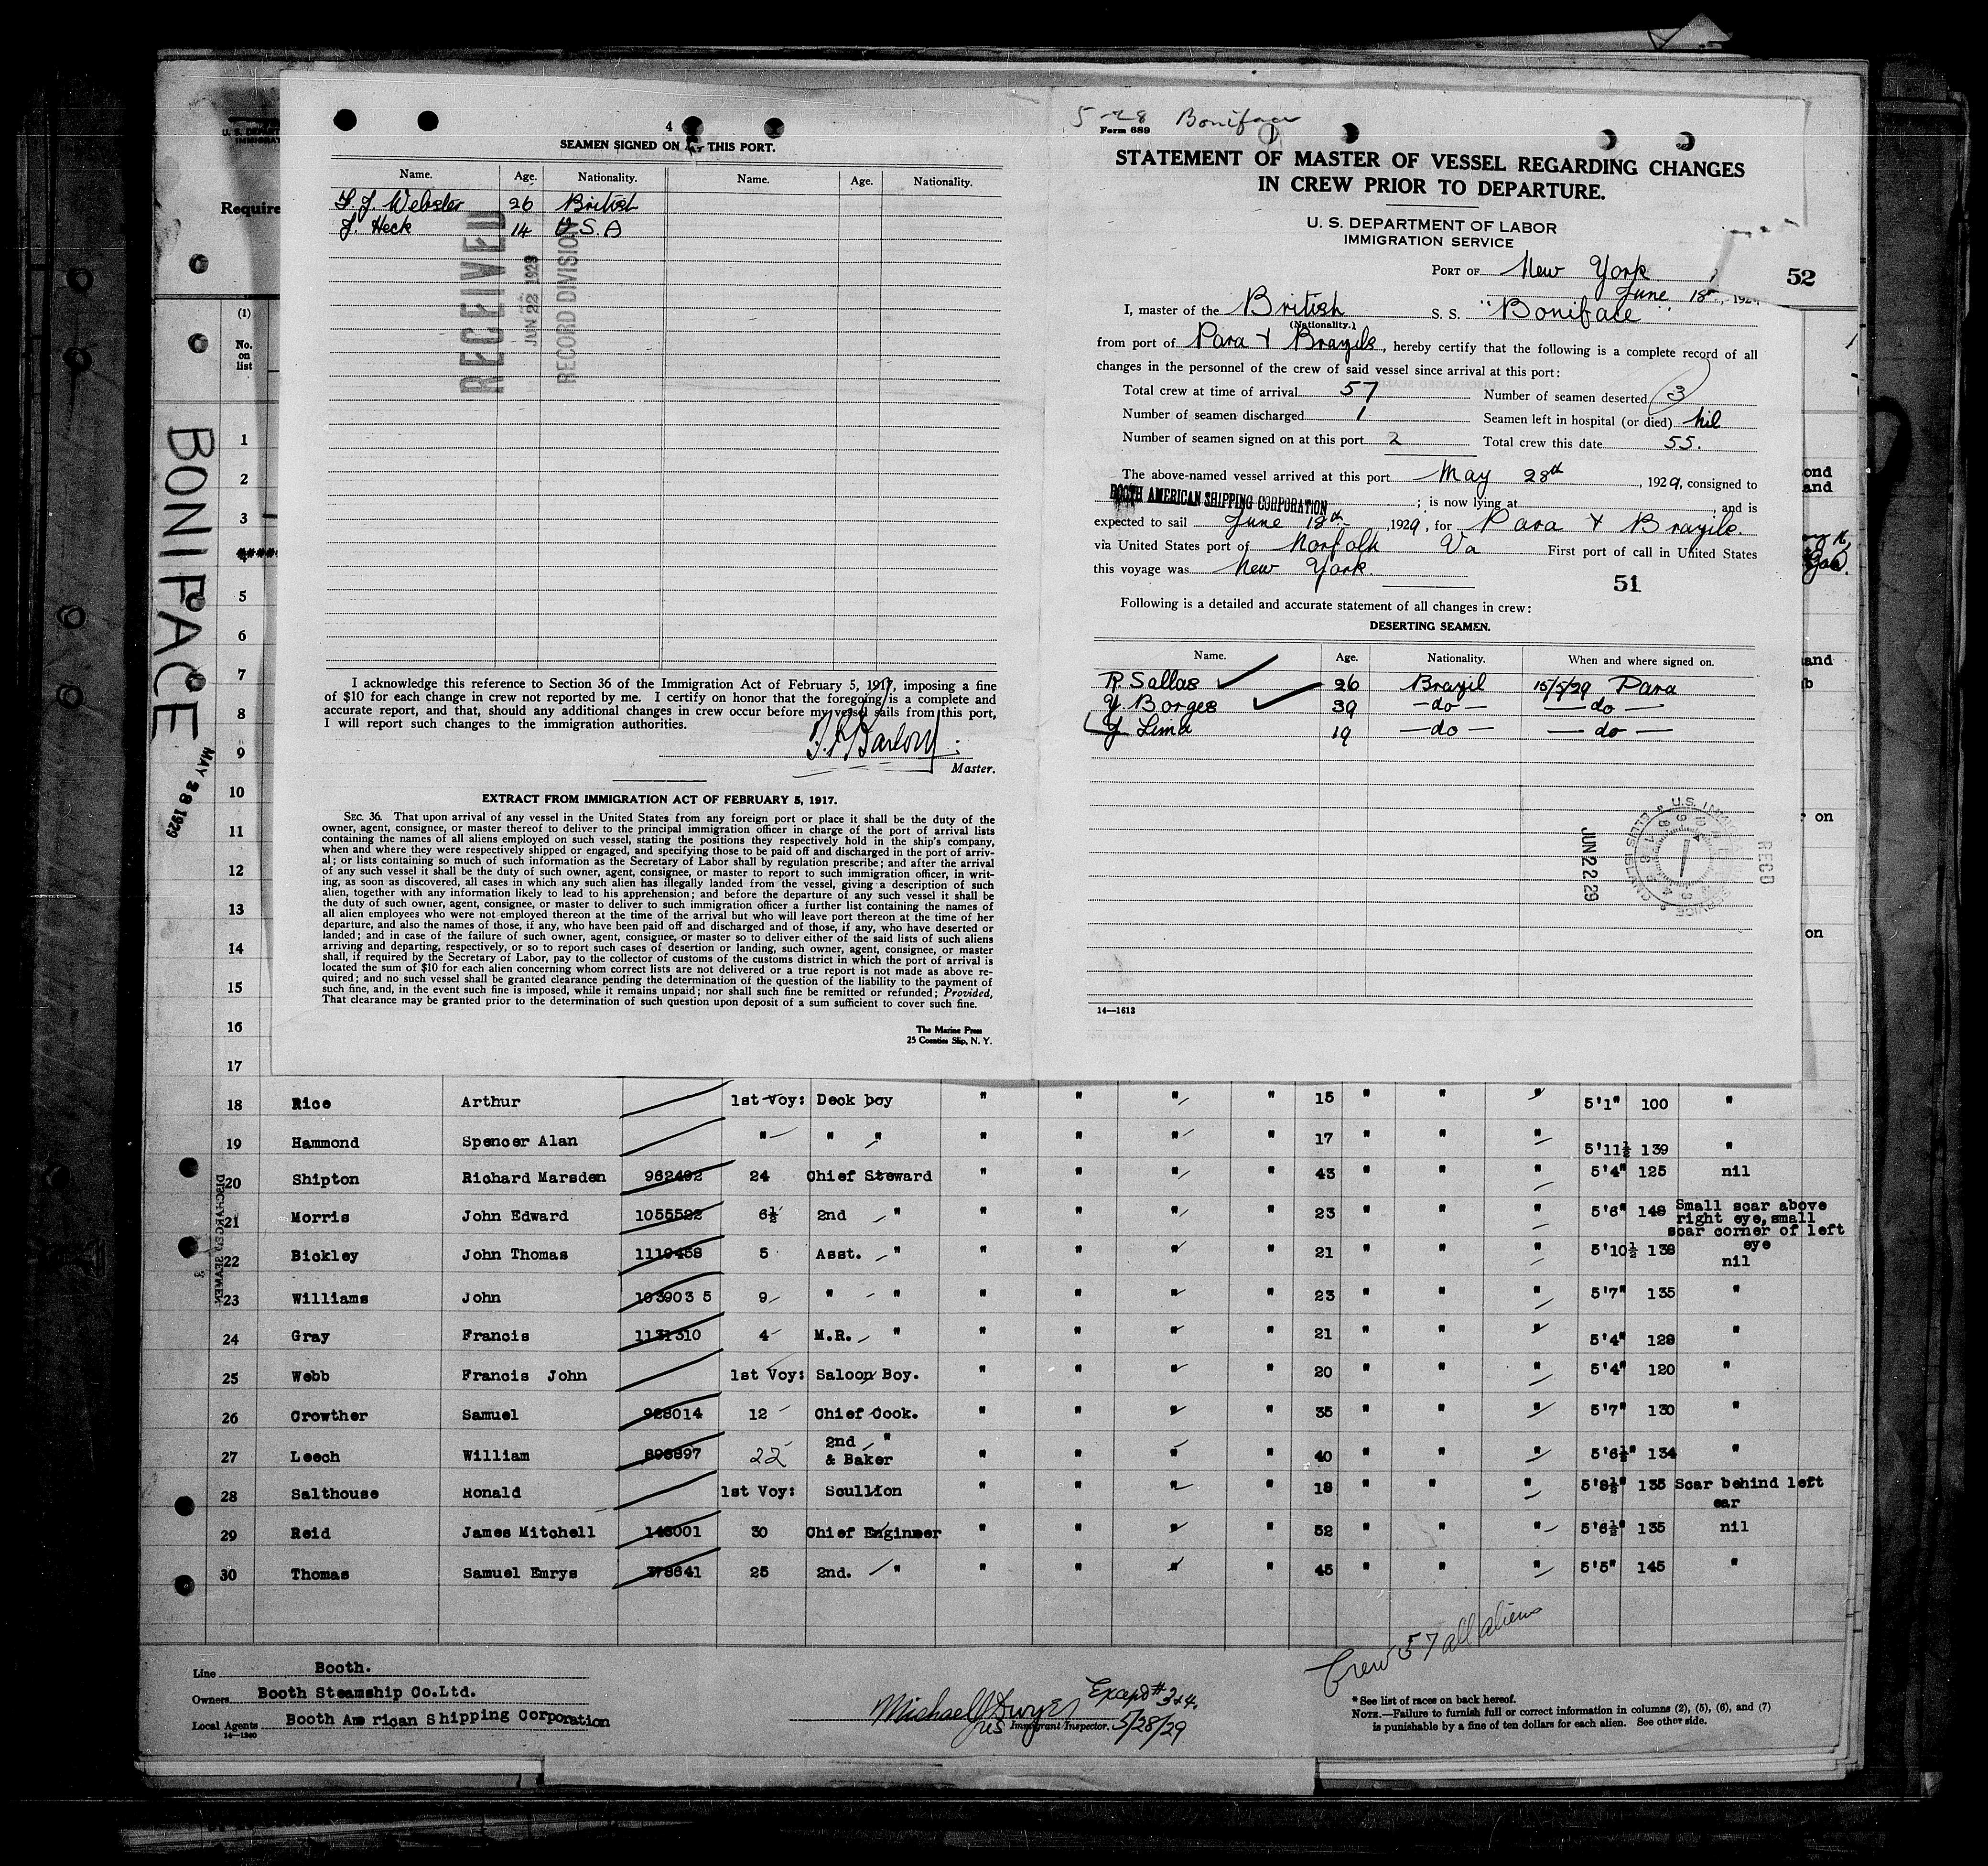 5-28 Boniface
Form 689
4
SEAMEN SIGNED ON AT THIS PORT.
Name. Age. Nationality. Name. Age. Nationality.
F. J. Webster 26 British
J. Heck 14 U.S.A
RECEIVED
JUN 22 1929
RECORD DIVISION
I acknowledge this reference to Section 36 of the Immigration Act of February 5, 1917, imposing a fine
of $10 for each change in crew not reported by me. I certify on honor that the foregoing is a complete and
accurate report, and that, should any additional changes in crew occur before my vessel sails from this port,
I will report such changes to the immigration authorities.
Master.
EXTRACT FROM IMMIGRATION ACT OF FEBRUARY 5, 1917.
SEC. 36. That upon arrival of any vessel in the United States from any foreign port or place it shall be the duty of the
owner, agent, consignee, or master thereof to deliver to the principal immigration officer in charge of the port of arrival lists
containing the names of all aliens employed on such vessel, stating the positions they respectively hold in the ship's company,
when and where they were respectively shipped or engaged, and specifying those to be paid off and discharged in the port of arriv-
al; or lists containing so much of such information as the Secretary of Labor shall by regulation prescribe; and after the arrival
of any such vessel it shall be the duty of such owner, agent, consignee, or master to report to such immigration officer, in writ-
ing, as soon as discovered, all cases in which any such alien has illegally landed from the vessel, giving a description of such
alien, together with any information likely to lead to his apprehension; and before the departure of any such vessel it shall be
the duty of such owner, agent, consignee, or master to deliver to such immigration officer a further list containing the names of
all alien employees who were not employed thereon at the time of the arrival but who will leave port thereon at the time of her
departure, and also the names of those, if any, who have been paid off and discharged and of those, if any, who have deserted or
landed; and in case of the failure of such owner, agent, consignee, or master so to deliver either of the said lists of such aliens
arriving and departing, respectively, or so to report such cases of desertion or landing, such owner, agent, consignee, or master
shall, if required by the Secretary of Labor, pay to the collector of customs of the customs district in which the port of arrival is
located the sum of $10 for each alien concerning whom correct lists are not delivered or a true report is not made as above re-
quired; and no such vessel shall be granted clearance pending the determination of the question of the liability to the payment of
such fine, and, in the event such fine is imposed, while it remains unpaid; nor shall such fine be remitted or refunded; Provided,
That clearance may be granted prior to the determination of such question upon deposit of a sum sufficient to cover such fine.
The Marine Press
25 Coenties Slip, N. Y.
STATEMENT OF MASTER OF VESSEL REGARDING CHANGES
IN CREW PRIOR TO DEPARTURE.
U. S. DEPARTMENT OF LABOR
IMMIGRATION SERVICE
PORT OF New York
52
June 18th, 192
I, master of the British S. S. "Boniface"
(Nationality.)
from port of Para & Brazils, hereby certify that the following is a complete record of all
changes in the personnel of the crew of said vessel since arrival at this port:
Total crew at time of arrival 57 Number of seamen deserted 3
Number of seamen discharged 1 Seamen left in hospital (or died) Nil
Number of seamen signed on at this port 2 Total crew this date 55.
The above-named vessel arrived at this port May 28th, 1929, consigned to
BOOTH AMERICAN SHIPPING CORPORATION ; is now lying at , and is
expected to sail June 18th, 1929, for Para & Brazils.
via United States port of Norfolk Va First port of call in United States
this voyage was New York.
51
Following is a detailed and accurate statement of all changes in crew:
DESERTING SEAMEN.
Name. Age. Nationality. When and where signed on.
R. Sallas 26 Brazil 15/5/29 Para
Y. Borges 39 -do- -do-
Y. Lima 19 -do- -do-
RECD
JUN 22 29
14—1613
Require
(1)
No.
on
list
BONIFACE
MAY 28 1929
1
2
3
4
5
6
7
8
9
10
11
12
13
14
15
16
17
18 Rice Arthur 1st Voy: Deck boy " " " " 15 " " " 5'1" 100 "
19 Hammond Spencer Alan " " " " " " " 17 " " " 5'11½ 139 "
20 Shipton Richard Marsden 962492 24 Chief Steward " " " " 43 " " " 5'4" 125 nil
21 Morris John Edward 1055592 6½ 2nd " " " " " 23 " " " 5'6" 148 Small scar above
right eye, small
scar corner of left
eye
22 Bickley John Thomas 1119458 5 Asst. " " " " " 21 " " " 5'10½ 138 nil
23 Williams John 103903 5 9 " " " " " " 23 " " " 5'7" 135 "
24 Gray Francis 1131310 4 M.R. " " " " " 21 " " " 5'4" 128 "
25 Webb Francis John 1st Voy: Saloon Boy. " " " " 20 " " " 5'4" 120 "
26 Crowther Samuel 928014 12 Chief Cook. " " " " 35 " " " 5'7" 130 "
27 Leech William 898897 22 2nd "
& Baker " " " " 40 " " " 5'6½" 134 "
28 Salthouse Ronald 1st Voy: Scullion " " " " 18 " " " 5'8½" 135 Scar behind left
ear
29 Reid James Mitchell 146001 30 Chief Enginner " " " " 52 " " " 5'6½" 135 nil
30 Thomas Samuel Emrys 378641 25 2nd. " " " " " 45 " " " 5'5" 145 "
DISCHARGED SEAMEN
Crew 57 all aliens
Line Booth.
Owners Booth Steamship Co.Ltd.
Local Agents Booth Ame rican Shipping Corporation
14—1240
Michael J Dwyer Except #3+4.
US Immigrant Inspector. 5/28/29
* See list of races on back hereof.
NOTE.—Failure to furnish full or correct information in columns (2), (5), (6), and (7)
is punishable by a fine of ten dollars for each alien. See other side.